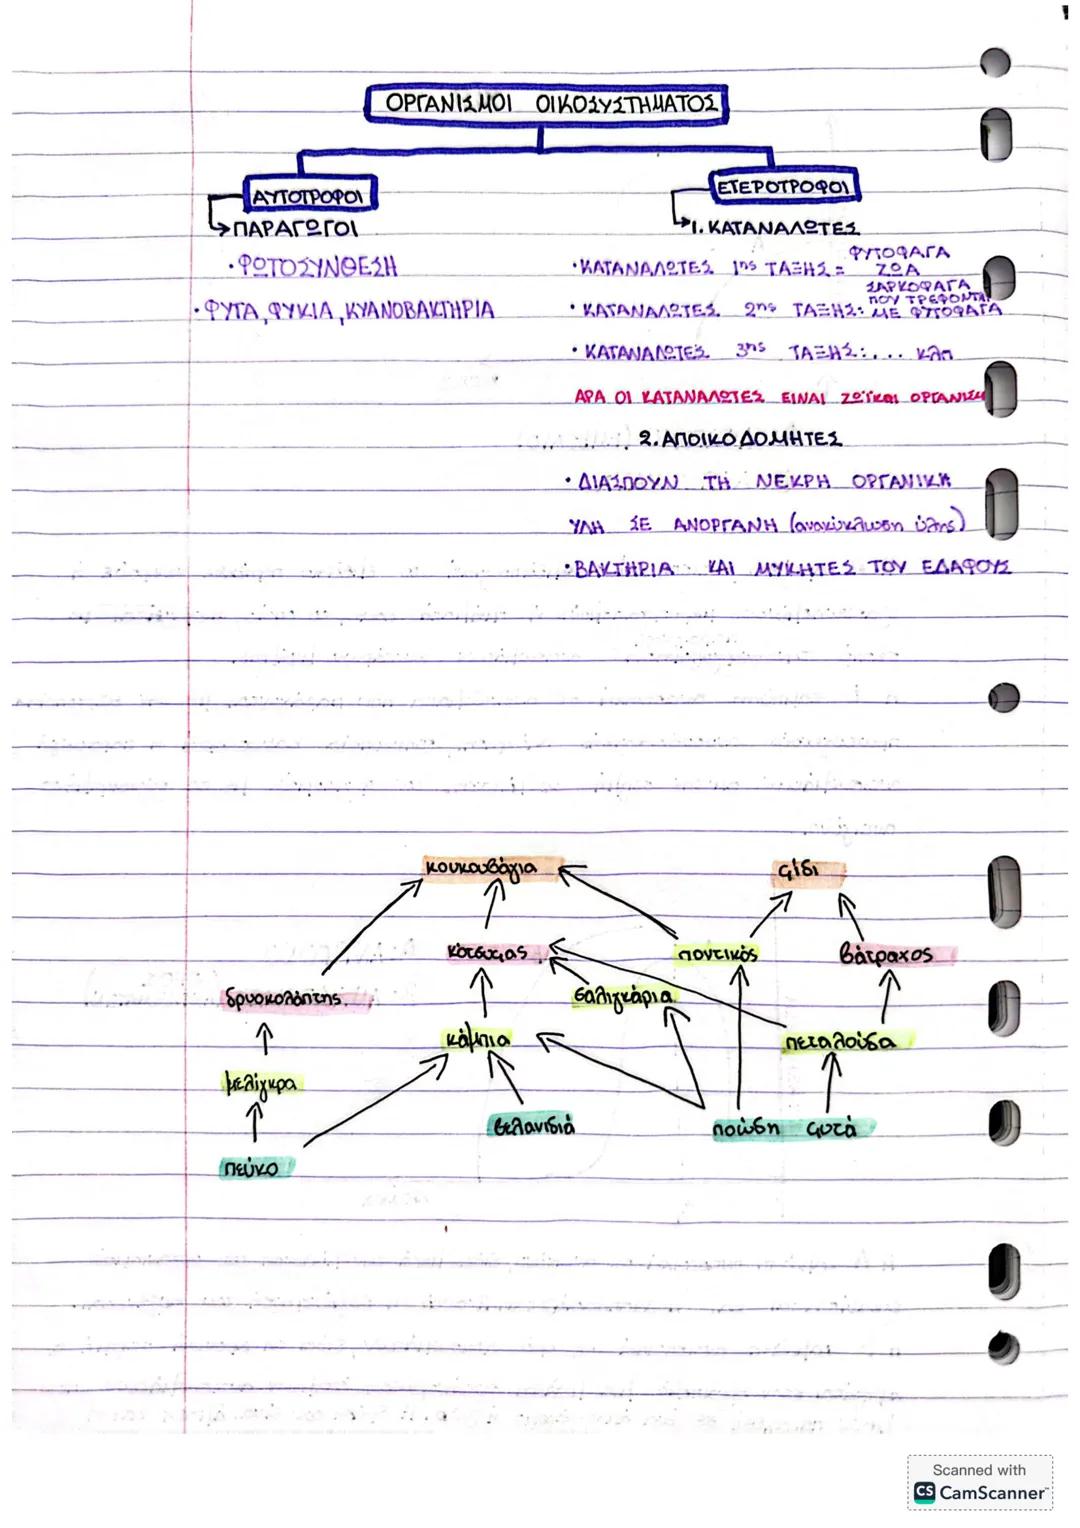 ΟΡΓΑΝΙΣΜΟΙ ΟΙΚΟΣΥΣΤΗΜΑΤΟΣ
ΑΥΤΟΤΡΟΦΟΙ
ΠΑΡΑΓΩΓΟΙ
·ΦΩΤΟΣΥΝΘΕΣΗ
·ΦΥΤΑ, ΦΥΚΙΑ, ΚΥΑΝΟΒΑΚΤΗΡΙΑ
ΕΤΕΡΟΤΡΟΦΟΙ
1. ΚΑΤΑΝΑΛΩΤΕΣ
·ΚΑΤΑΝΑΛΩΤΕΣ 1ης ΤΑΞΗΣ = ΦΥΤΟΦΑΓΑ ΖΩΑ
·ΚΑΤΑΝΑΛΩΤΕΣ 2ης ΤΑΞΗΣ: ΣΑΡΚΟΦΑΓΑ ΠΟΥ ΤΡΕΦΟΝΤΑΙ ΜΕ ΦΥΤΟΦΑΓΑ
·ΚΑΤΑΝΑΛΩΤΕΣ 3ης ΤΑΞΗΣ:... κλπ
ΑΡΑ ΟΙ ΚΑΤΑΝΑΛΩΤΕΣ ΕΙΝΑΙ ΖΩΪΚΟΙ
2. ΑΠΟΙΚΟΔΟΜΗΤΕΣ
·ΔΙΑΣΠΟΥΝ ΤΗ ΝΕΚΡΗ ΟΡΓΑΝΙΚΗ
ΥΛΗ ΣΕ ΑΝΟΡΓΑΝΗ (ανακύκλωση ύλης)
·ΒΑΚΤΗΡΙΑ ΚΑΙ ΜΥΚΗΤΕΣ ΤΟΥ ΕΔΑΦΟΥΣ
κουκουβάγια
φίδι
κότσυφας
ποντικός
βάτραχος
δρυοκολάπτης
σαλιγκάρια
κάμπια
πεταλούδα
μελίγκρα
βελανιδιά
ποώδη φυτά
πεύκο
Scanned with
CS CamScanner